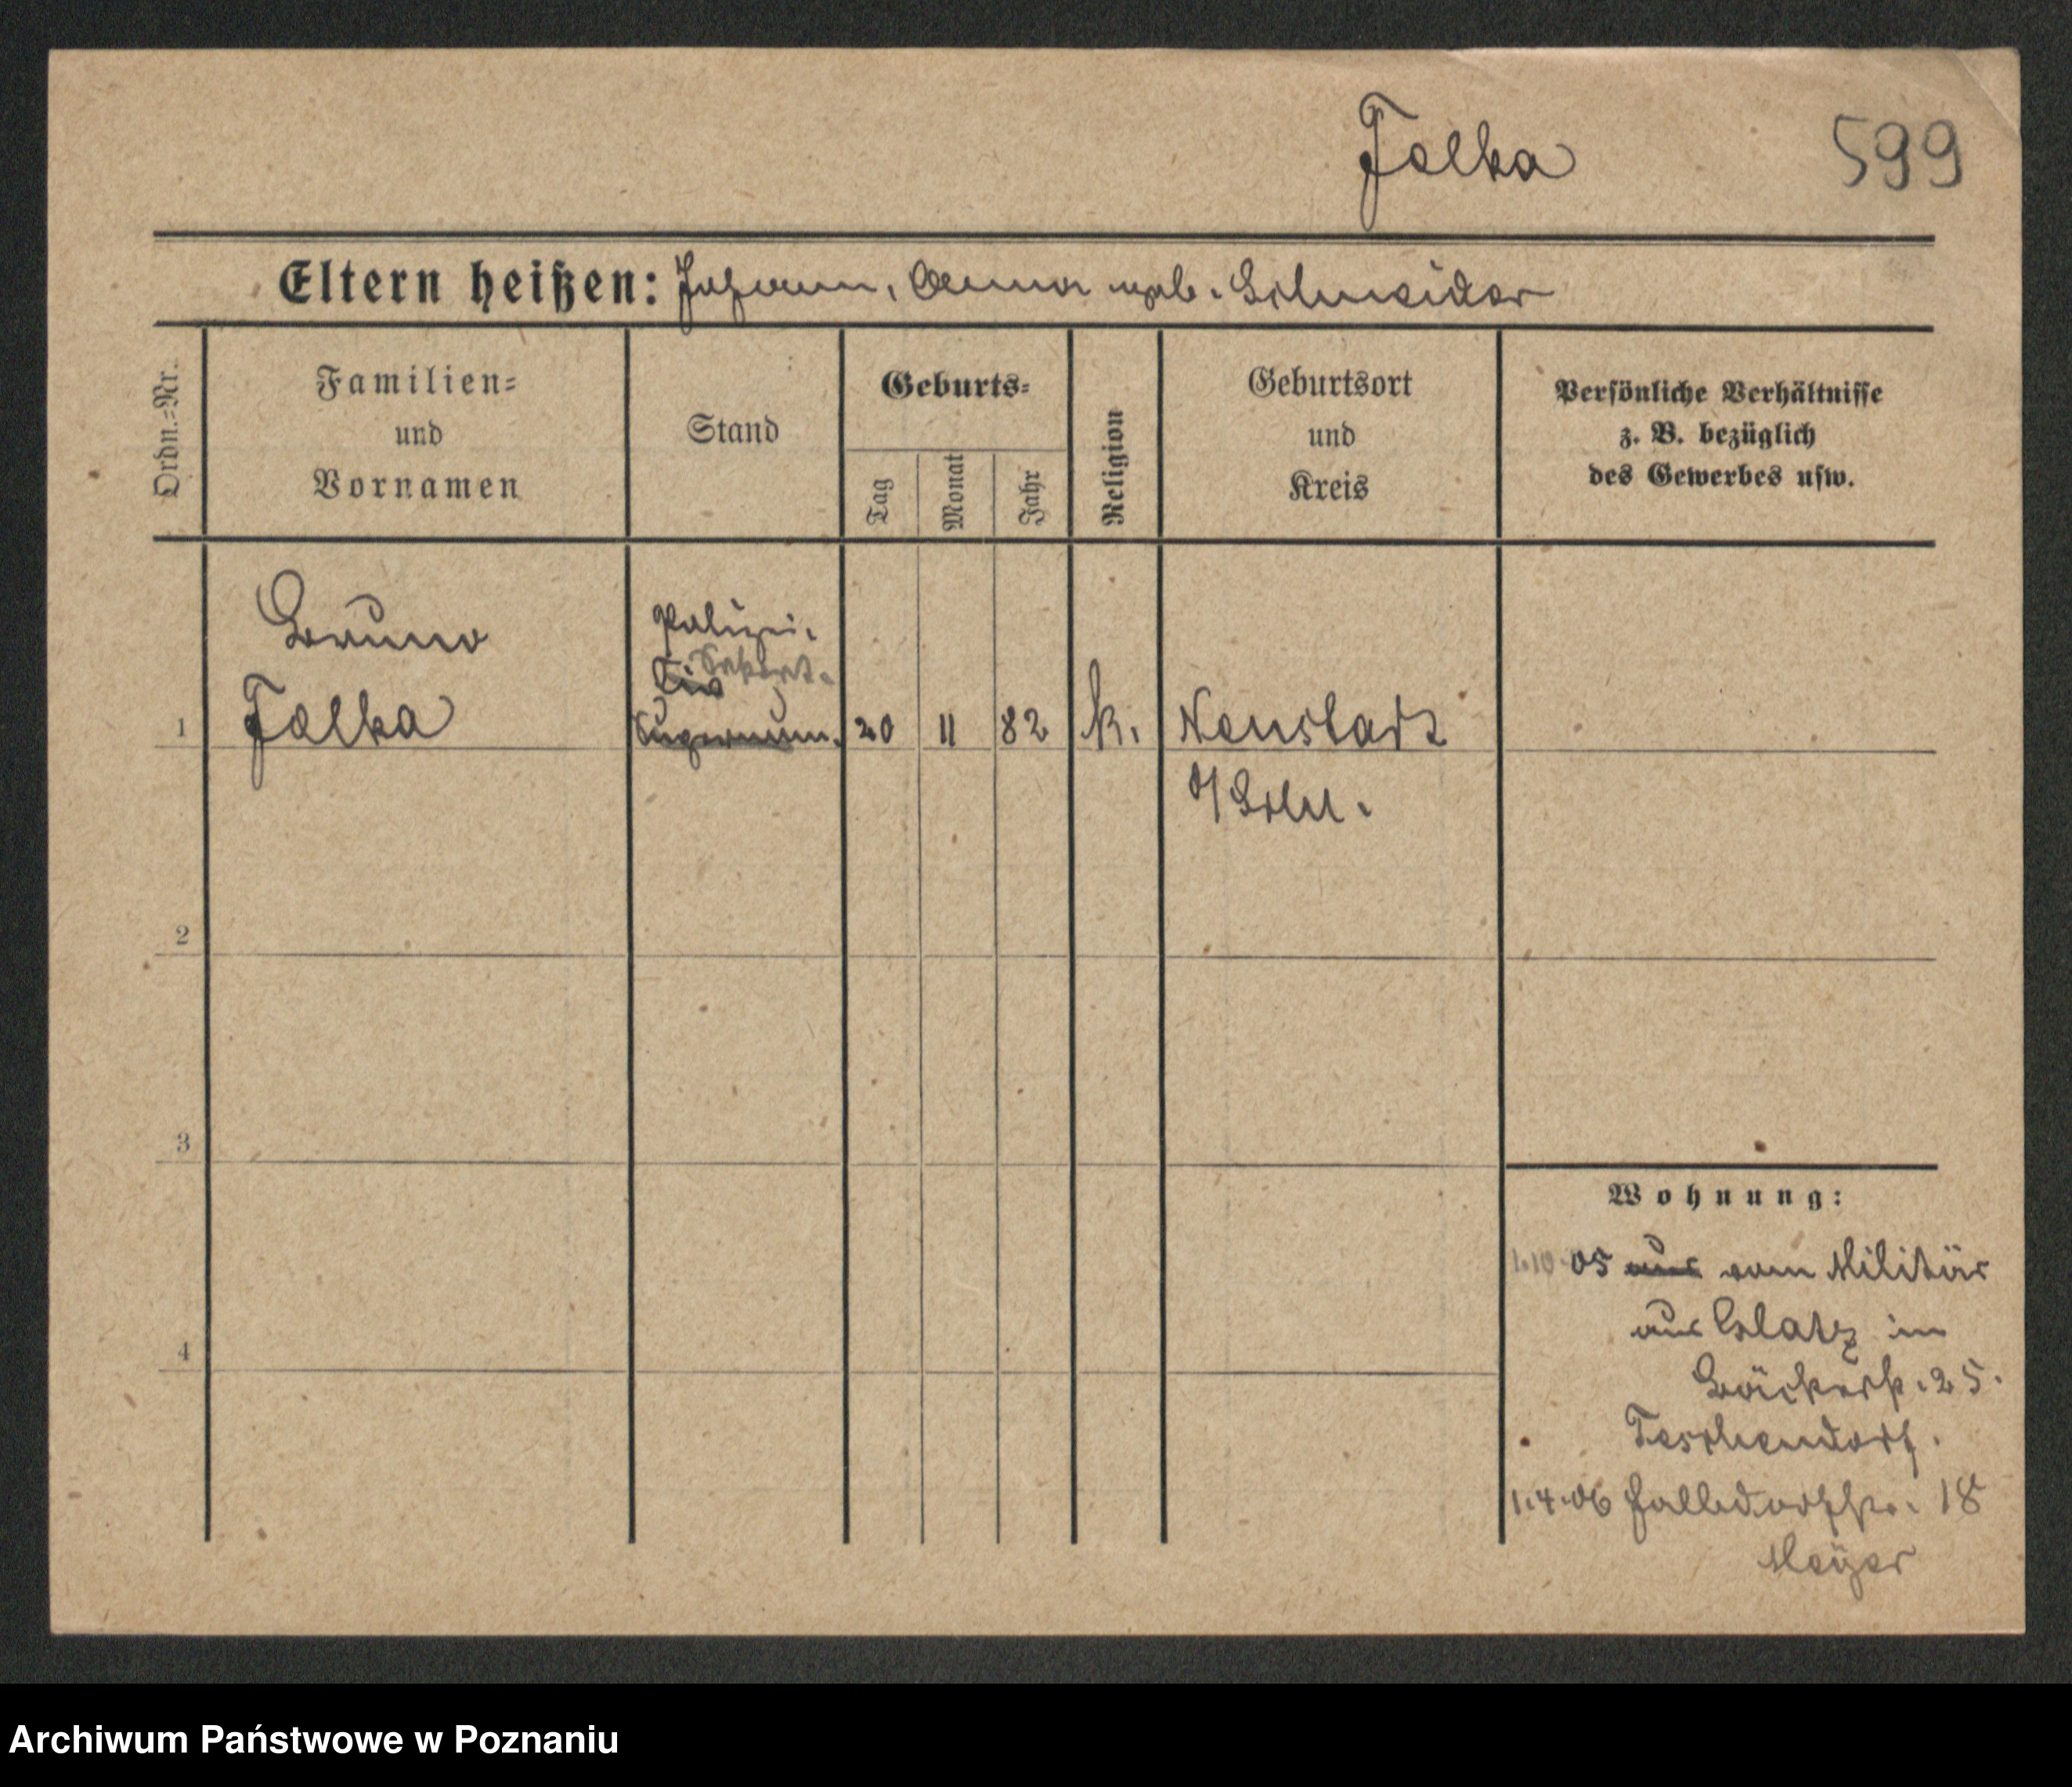 Folka 599
Eltern heißen: Johann, Anna geb. Schneider
Ordn.=Nr.
Familien=
und
Vornamen
Stand
Geburts=
Tag
Monat
Jahr
Religion
Geburtsort
und
Kreis
Persönliche Verhältnisse
z. B. bezüglich
des Gewerbes usw.
Bruno
Polizei.
Sekret.
Civ
1 Folka Supernum. 20 11 82 k. Neustadt
O/Schl.
2
3
4
Wohnung:
1.10.05 aus vom Militär
aus Glatz in
Bäckerstr. 25.
Teschendorf.
1.4.06 18
Meyer
Archiwum Państwowe w Poznaniu